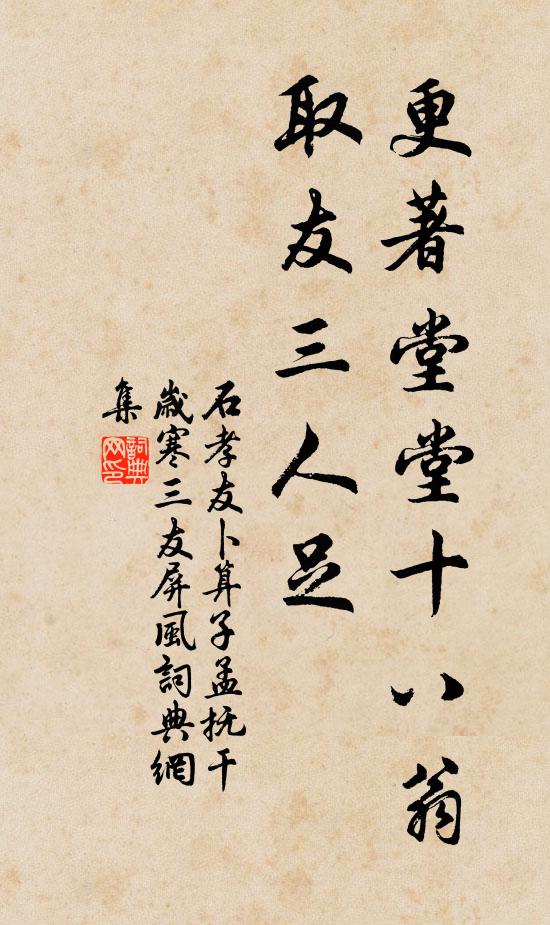 更著堂堂十八翁
取友三人足
石孝友卜算子孟抚干
歲寒三友屏風詞典網
集
詞典
网印